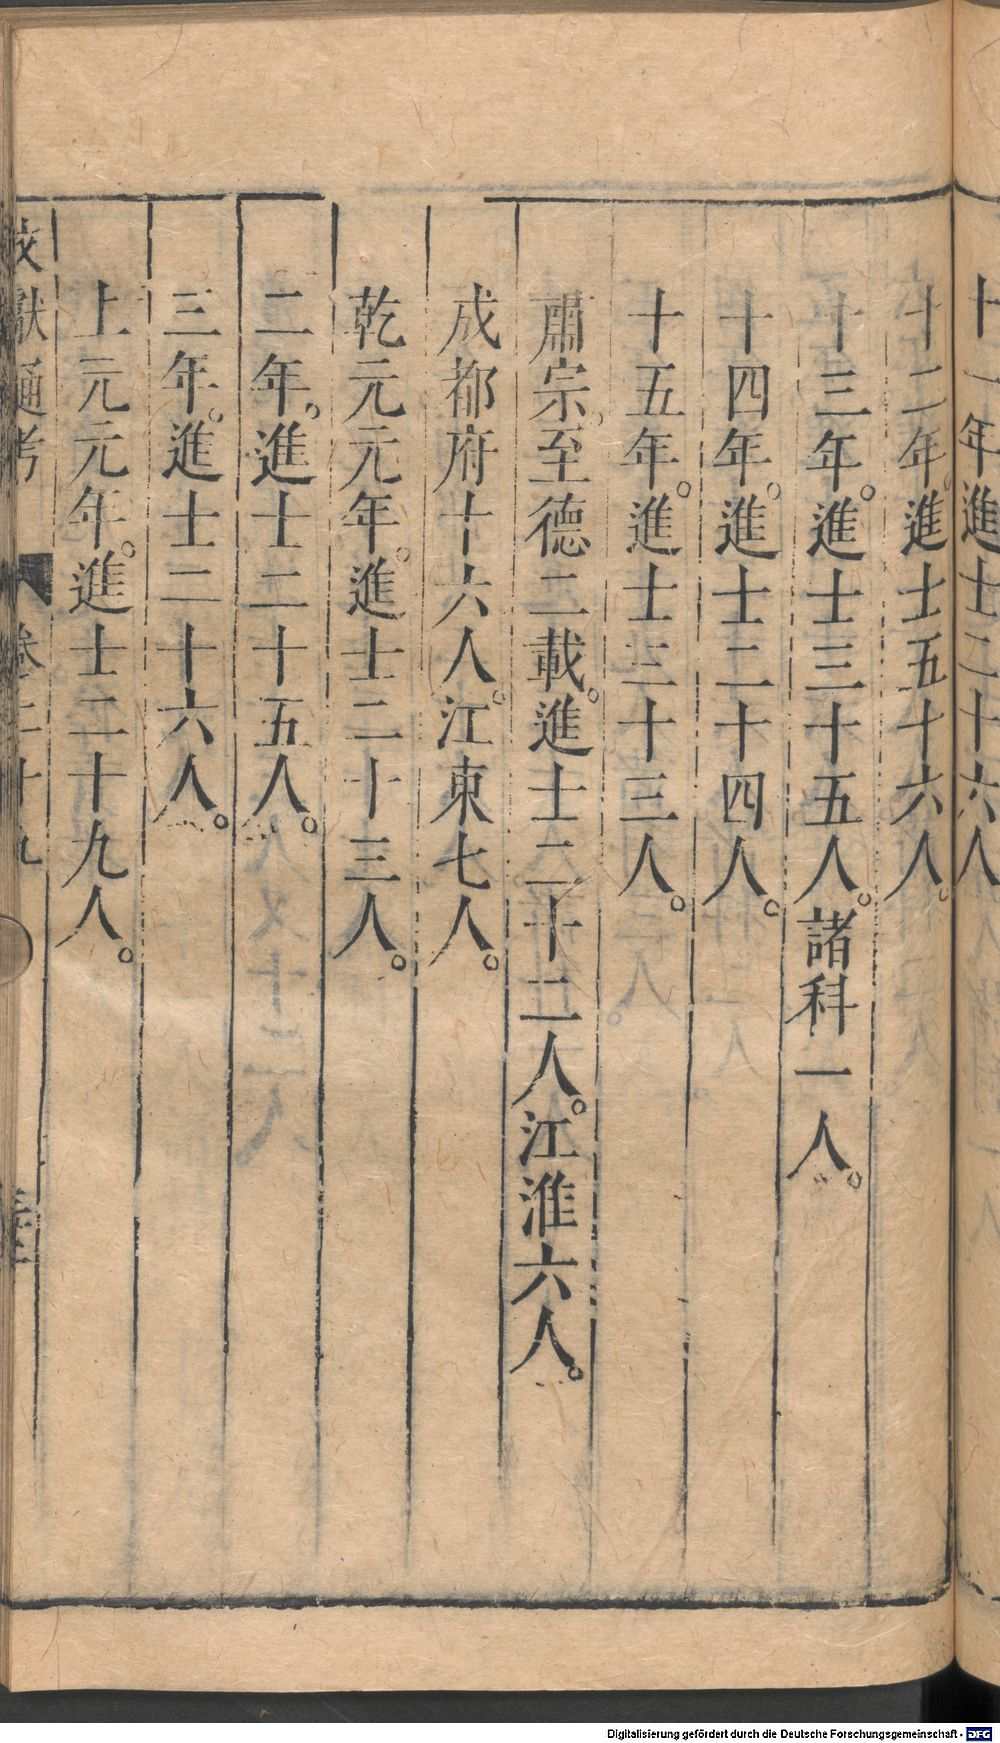 十一年進士二十六人
十二年。進士五十六人。
十三年。進士三十五人。諸科一人。
十四年。進士二十四人。
十五年。進士三十三人。
肅宗至德二載。進士二十二人。江淮六人。
成都府十六人。江東七人。
乾元元年。進士二十三人。
二年。進士二十五人。
三年。進士二十六人。
上元元年。進士二十九人。
文獻通考 卷二十九
Digitalisierung gefördert durch die Deutsche Forschungsgemeinschaft - DFG